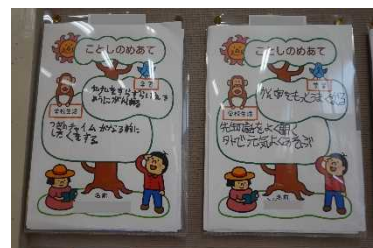 ことしのめあて
九九をすらすらいえる
ようにがんばる
学校生活
つぎのチャイムがなる前に
したくをする
名前
ことしのめあて
かん字をもっとうまくなる
学校生活
先生の話をよく聞く
外で元気よくあそぶ
名前